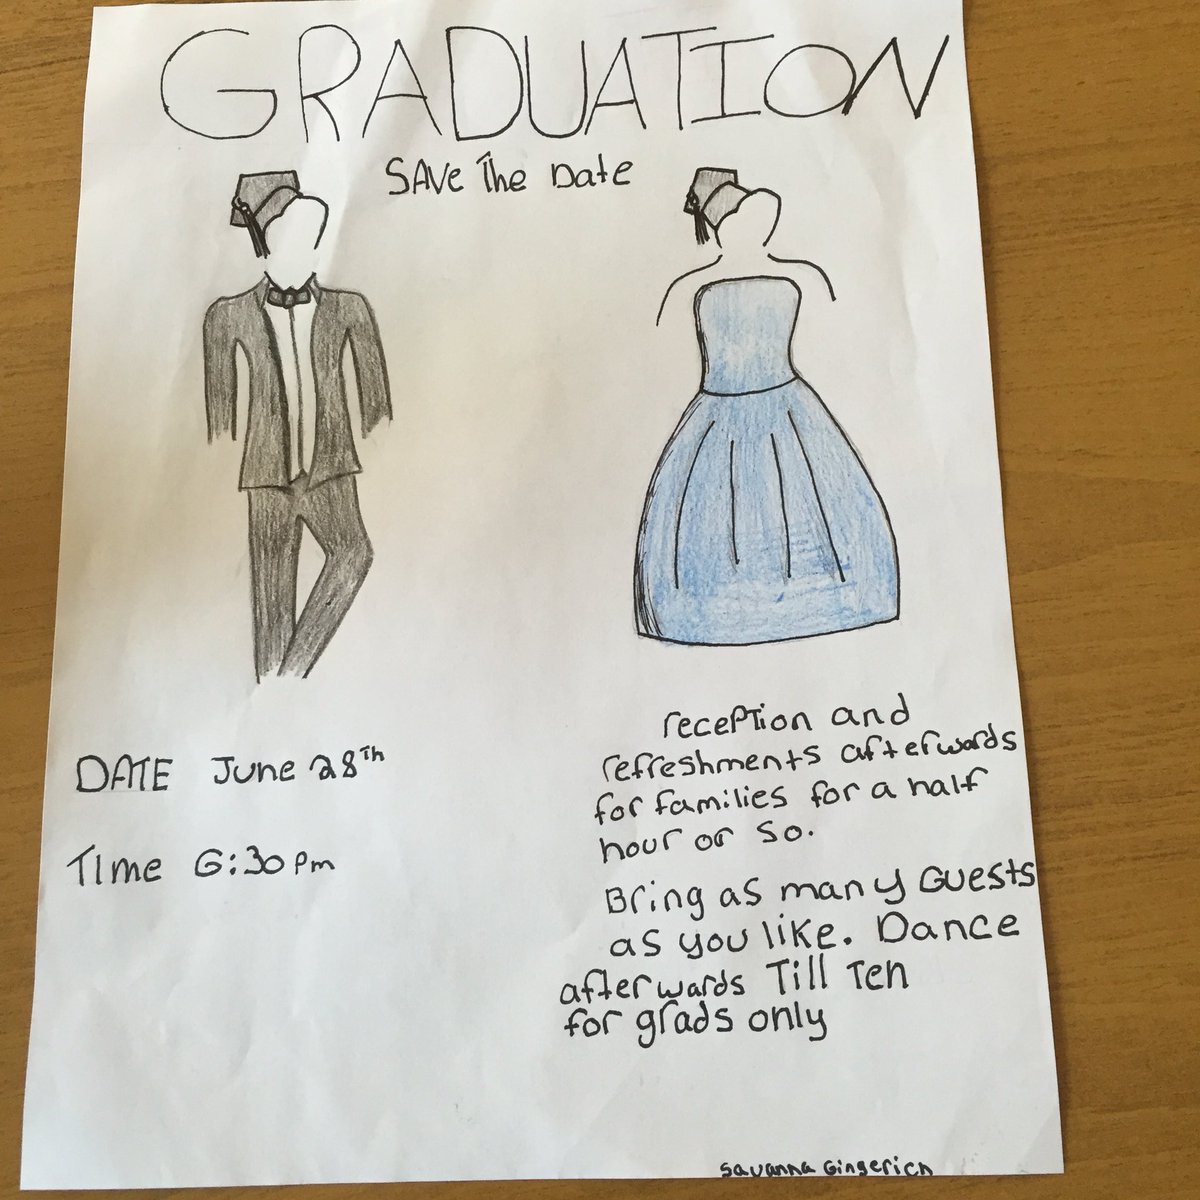 GRADUATION
SAVe The Date
DATE June 28Th
TIme 6:30 Pm
recePTION and
refreshments afterwards
for families for a half
hour or so.
Bring as many Guests
as you like. Dance
afterwards Till Ten
for grads only
Savanna Gingerich